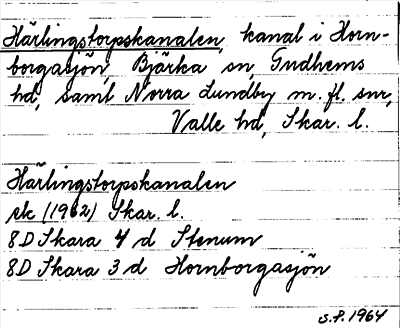 Härlingstorpskanalen, kanal i Horn-
borgasjön, Bjärka sn, Gudhems
hd, samt Norra Lundby m. fl. snr,
Valle hd, Skar. l.
Härlingstorpskanalen
ek (1962) Skar. l.
8D Skara 4 d Stenum
8D Skara 3 d Hornborgasjön
S.P. 1964